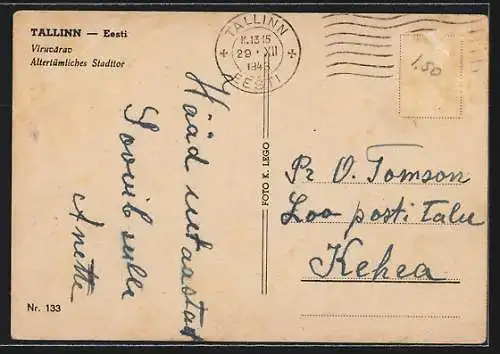 TALLINN — Eesti
Viruvärav
Altertümliches Stadttor
TALLINN
K.13·15
29·XII
EESTI
1.50
Hääd uutaastat
Soovib sulle
Anette
FOTO K. LEGO
Pr O. Tomson
Loo posti Talu
Kehra
Nr. 133